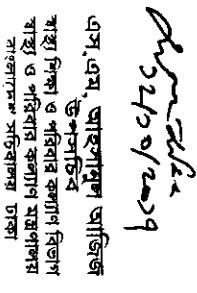 ১২/১০/২০১৭
এস.এম. আহসানুল আজিজ
উপসচিব
স্বাস্থ্য শিক্ষা ও পরিবার কল্যাণ বিভাগ
স্বাস্থ্য ও পরিবার কল্যাণ মন্ত্রণালয়
বাংলাদেশ সচিবালয় ঢাকা